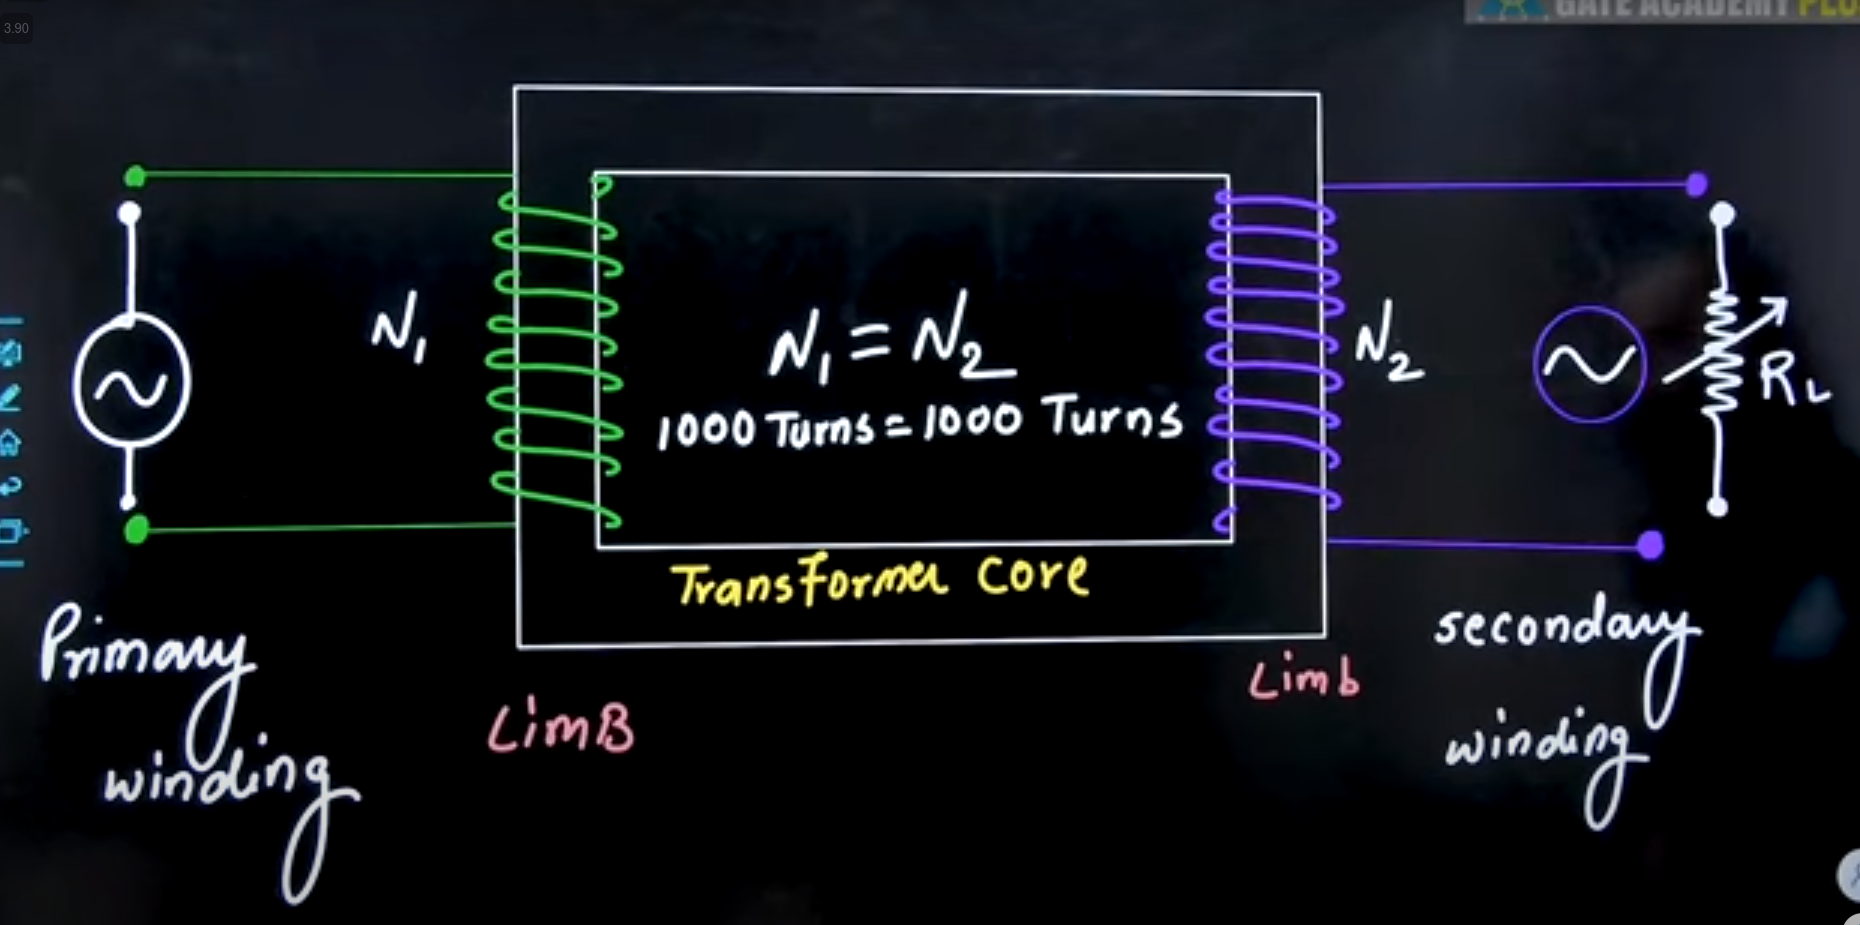 3.90
GATE ACADEMY PLUS
N₁
N₁ = N₂
1000 Turns = 1000 Turns
N₂
RL
Transformer core
Primary
winding
LimB
Limb
secondary
winding